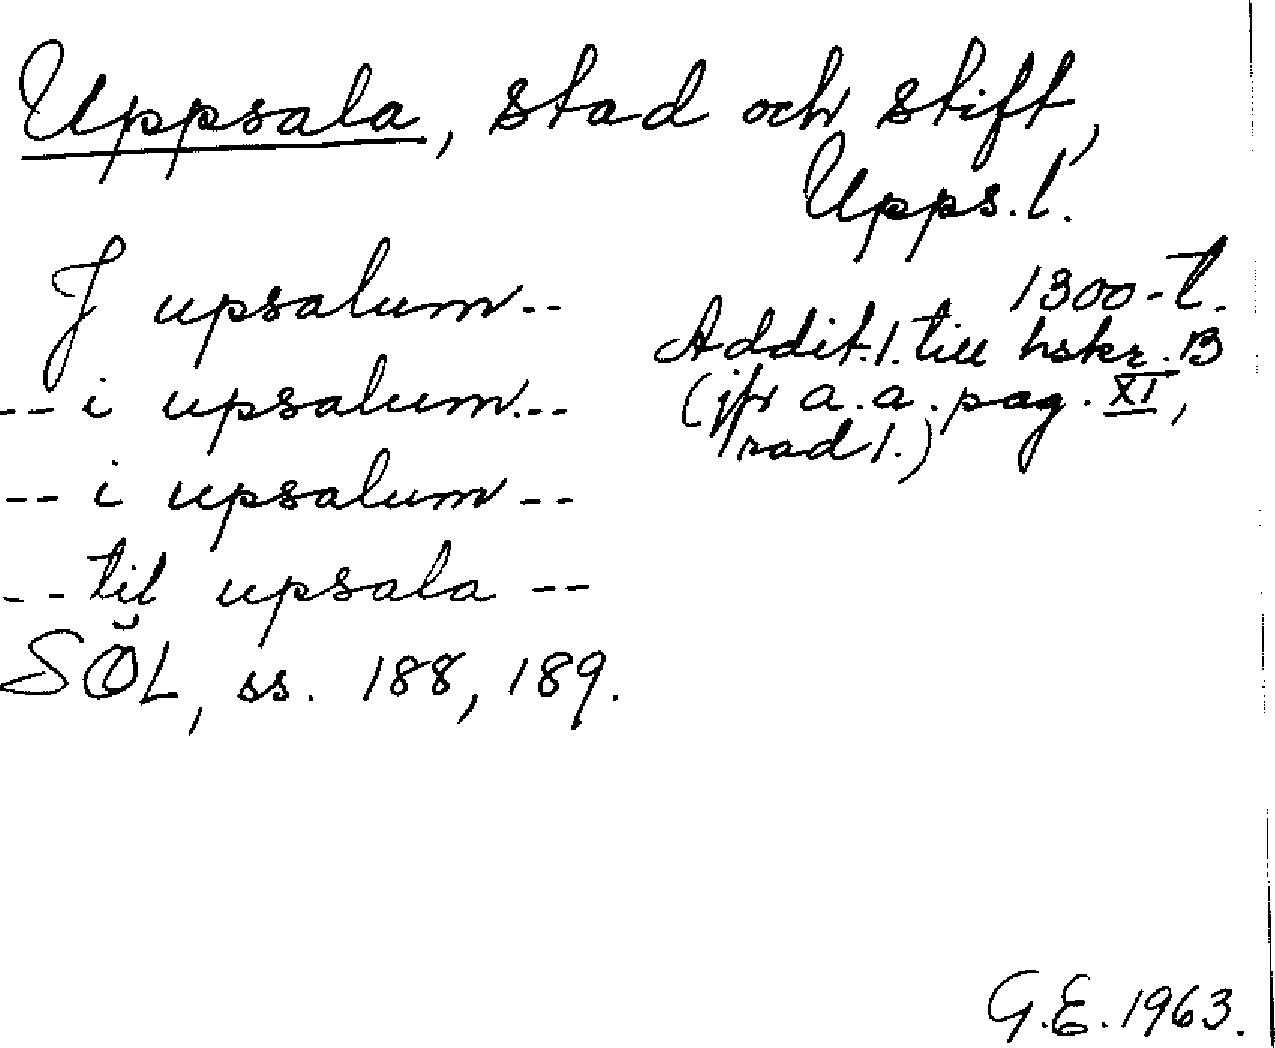 Uppsala, stad och stift,
Upps. l.
J upsalum--
1300-t.
Addit. 1. till hskr. B
(jfr a. a. pag. XI,
rad 1.)
-- i upsalum--
-- i upsalum--
-- til upsala --
SÖL, ss. 188, 189.
G.E. 1963.